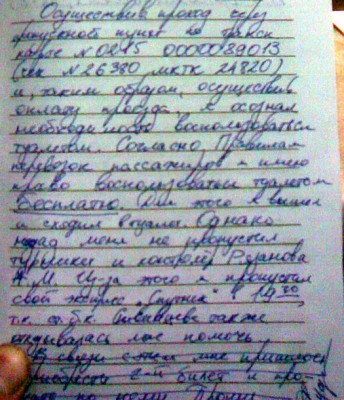 Осуществив проход через
пропускной пункт по трансп
карте N 0215 0000089013
(чек N 26380 МКТК 24820)
и, таким образом, осуществив
оплату проезда, я осознал
необходимость воспользоваться
туалетом. Согласно Правилам
перевозок пассажиров я имею
право воспользоваться туалетом
Бесплатно. Для этого я вышел
и сходил в туалет. Однако
назад меня не пропустил
турникет и контролер Рязанова
А.М. Из-за этого я пропустил
свой экспресс "Спутник" в 19
т.к. также
отказывалась мне помочь
В связи с чем мне пришлось
приобрести 2-й билет и про
по нему. Прошу